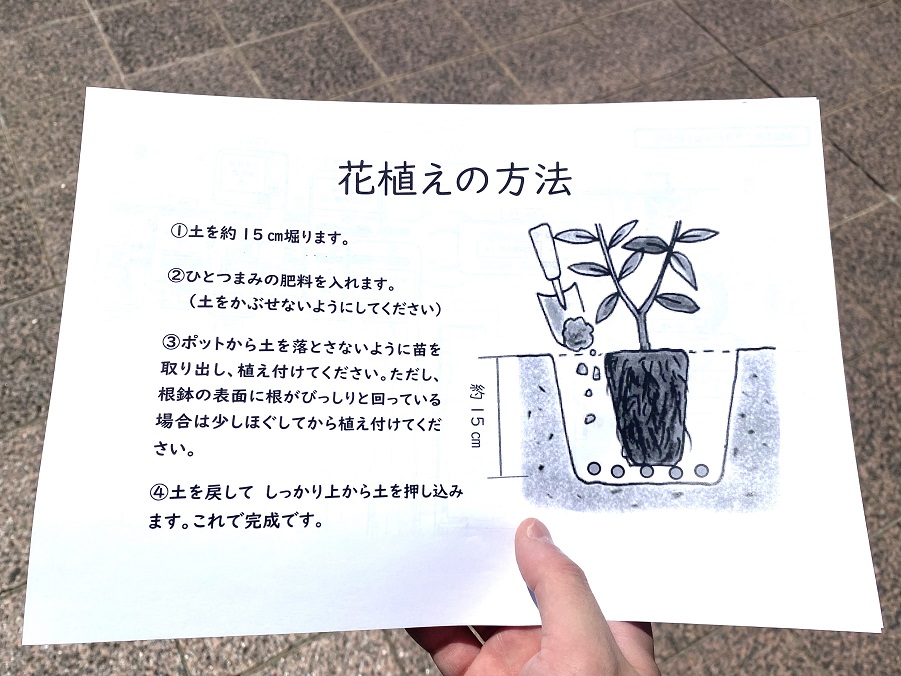 花植えの方法
①土を約15㎝堀ります。
②ひとつまみの肥料を入れます。
（土をかぶせないようにしてください）
③ポットから土を落とさないように苗を
取り出し、植え付けてください。ただし、
根鉢の表面に根がびっしりと回っている
場合は少しほぐしてから植え付けてくだ
さい。
④土を戻して しっかり上から土を押し込み
ます。これで完成です。
約15㎝